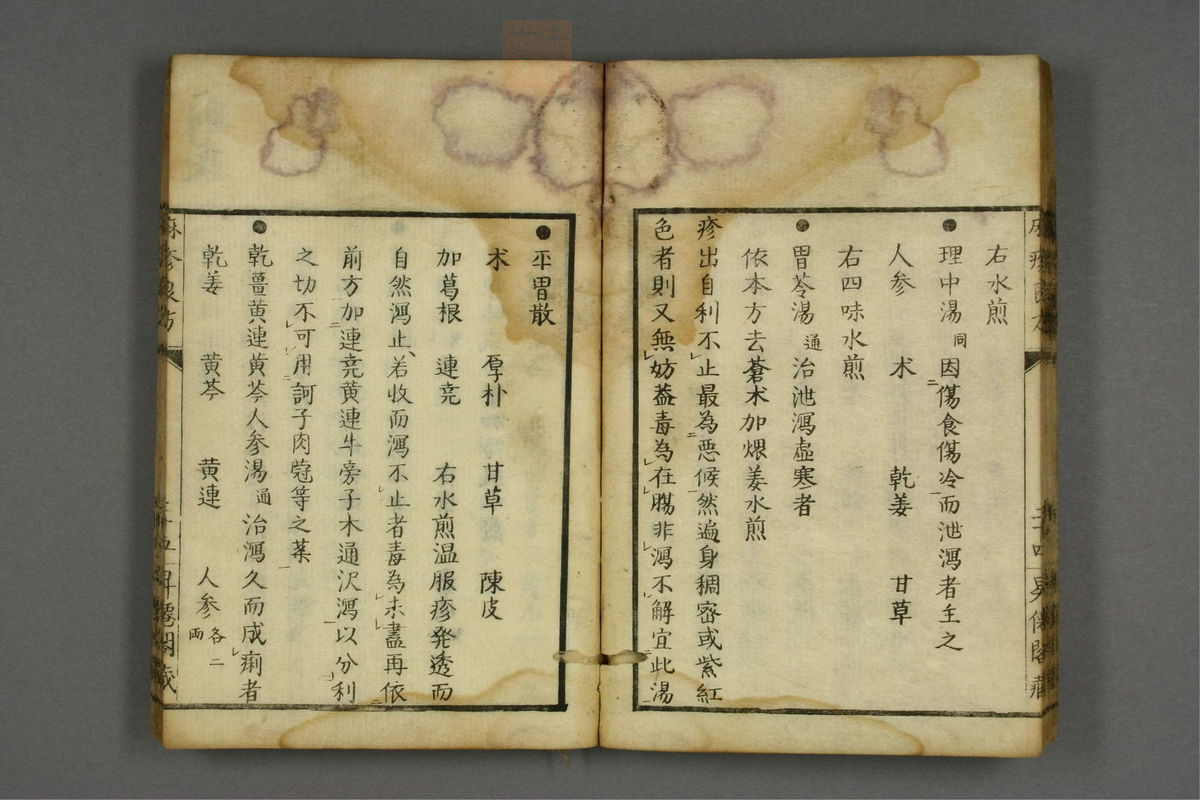 右水煎
●理中湯 同 因傷食傷冷而泄瀉者主之
人参 术 乾姜 甘草
右四味水煎
●胃苓湯 通 治泄瀉虛寒者
依本方去蒼术加煨姜水煎
疹出自利不止最為悪候然遍身稠密或紫紅
色者則又無妨葢毒為在膓非瀉不解宜此湯
●平胃散
术 厚朴 甘草 陳皮
加葛根 連堯 右水煎温服疹発透而
自然瀉止若收而瀉不止者毒為未盡再依
前方加連堯黄連牛旁子木通沢瀉以分利
之切不可用訶子肉蔲等之薬
●乾薑黄連黄芩人参湯 通 治瀉久而成痢者
乾姜 黄芩 黄連 人参 各二両
麻疹良方